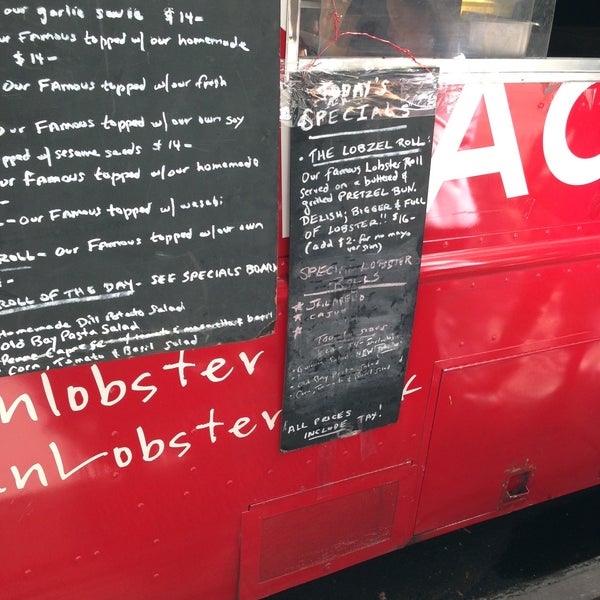 our garlic sauce $14-
our Famous topped w/ our homemade
$14-
Our Famous topped w/our fresh
Our Famous topped w/ our own soy
topped w/ sesame seeds $14-
our Famous topped w/our homemade
- Our Famous topped w/ wasabi
ROLL - Our Famous topped w/our own
ROLL OF THE DAY - SEE SPECIALS BOARD
Homemade Dill Potato Salad
Old Bay Pasta Salad
Corn, Tomato & Basil Salad
nlobster
nLobster
TODAY'S
SPECIALS
• THE LOBZEL ROLL:
Our famous Lobster Roll
served on a buttered &
grilled PRETZEL BUN.
DELISH; BIGGER & FULL
OF LOBSTER!! $16-
(add $2- for no mayo
version)
SPECIAL LOBSTER
ROLLS
JALAPENO
CAJUN
Old Bay Pasta Salad
ALL PRICES
INCLUDE TAX!
AC